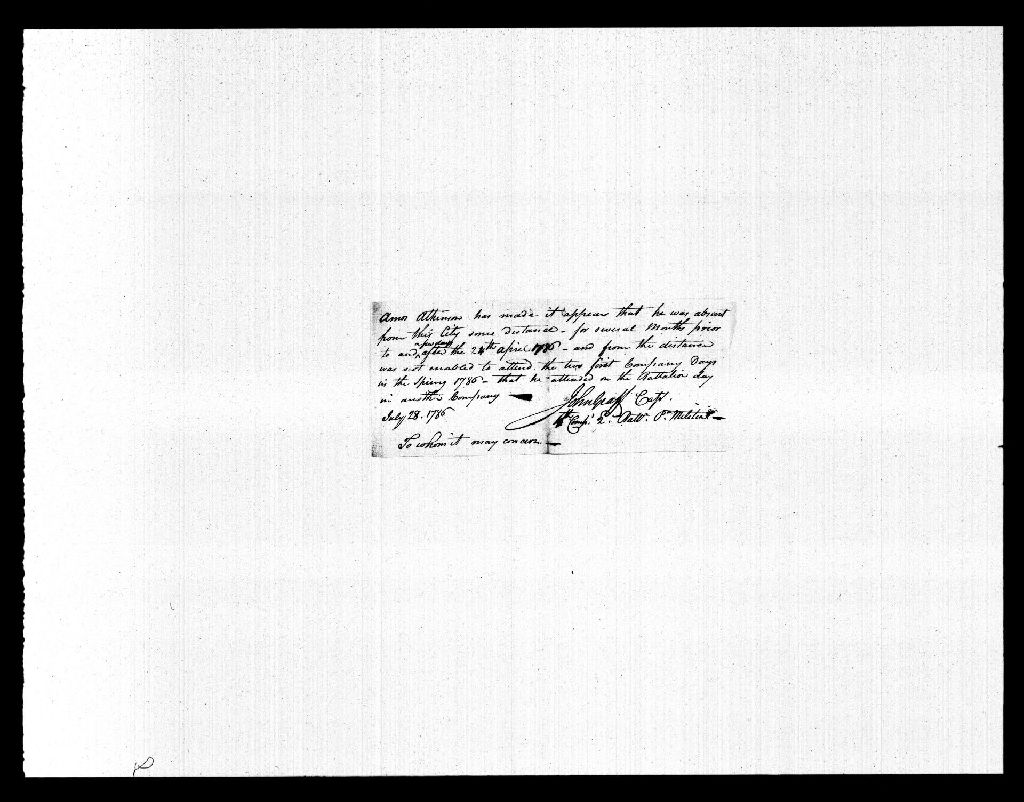 Amos Atkinson has made it appear that he was absent
from this City some distance - for several Months prior
to and after the 24th April 1786 - and from the distance
a few days
was not enabled to attend the two first Company Days
in the Spring 1786 - that he attended on the Battalion day
in another Company
John Graff Capt.
July 28. 1786
4th Compy. 2d. Batt. P. Militia
To whom it may concern